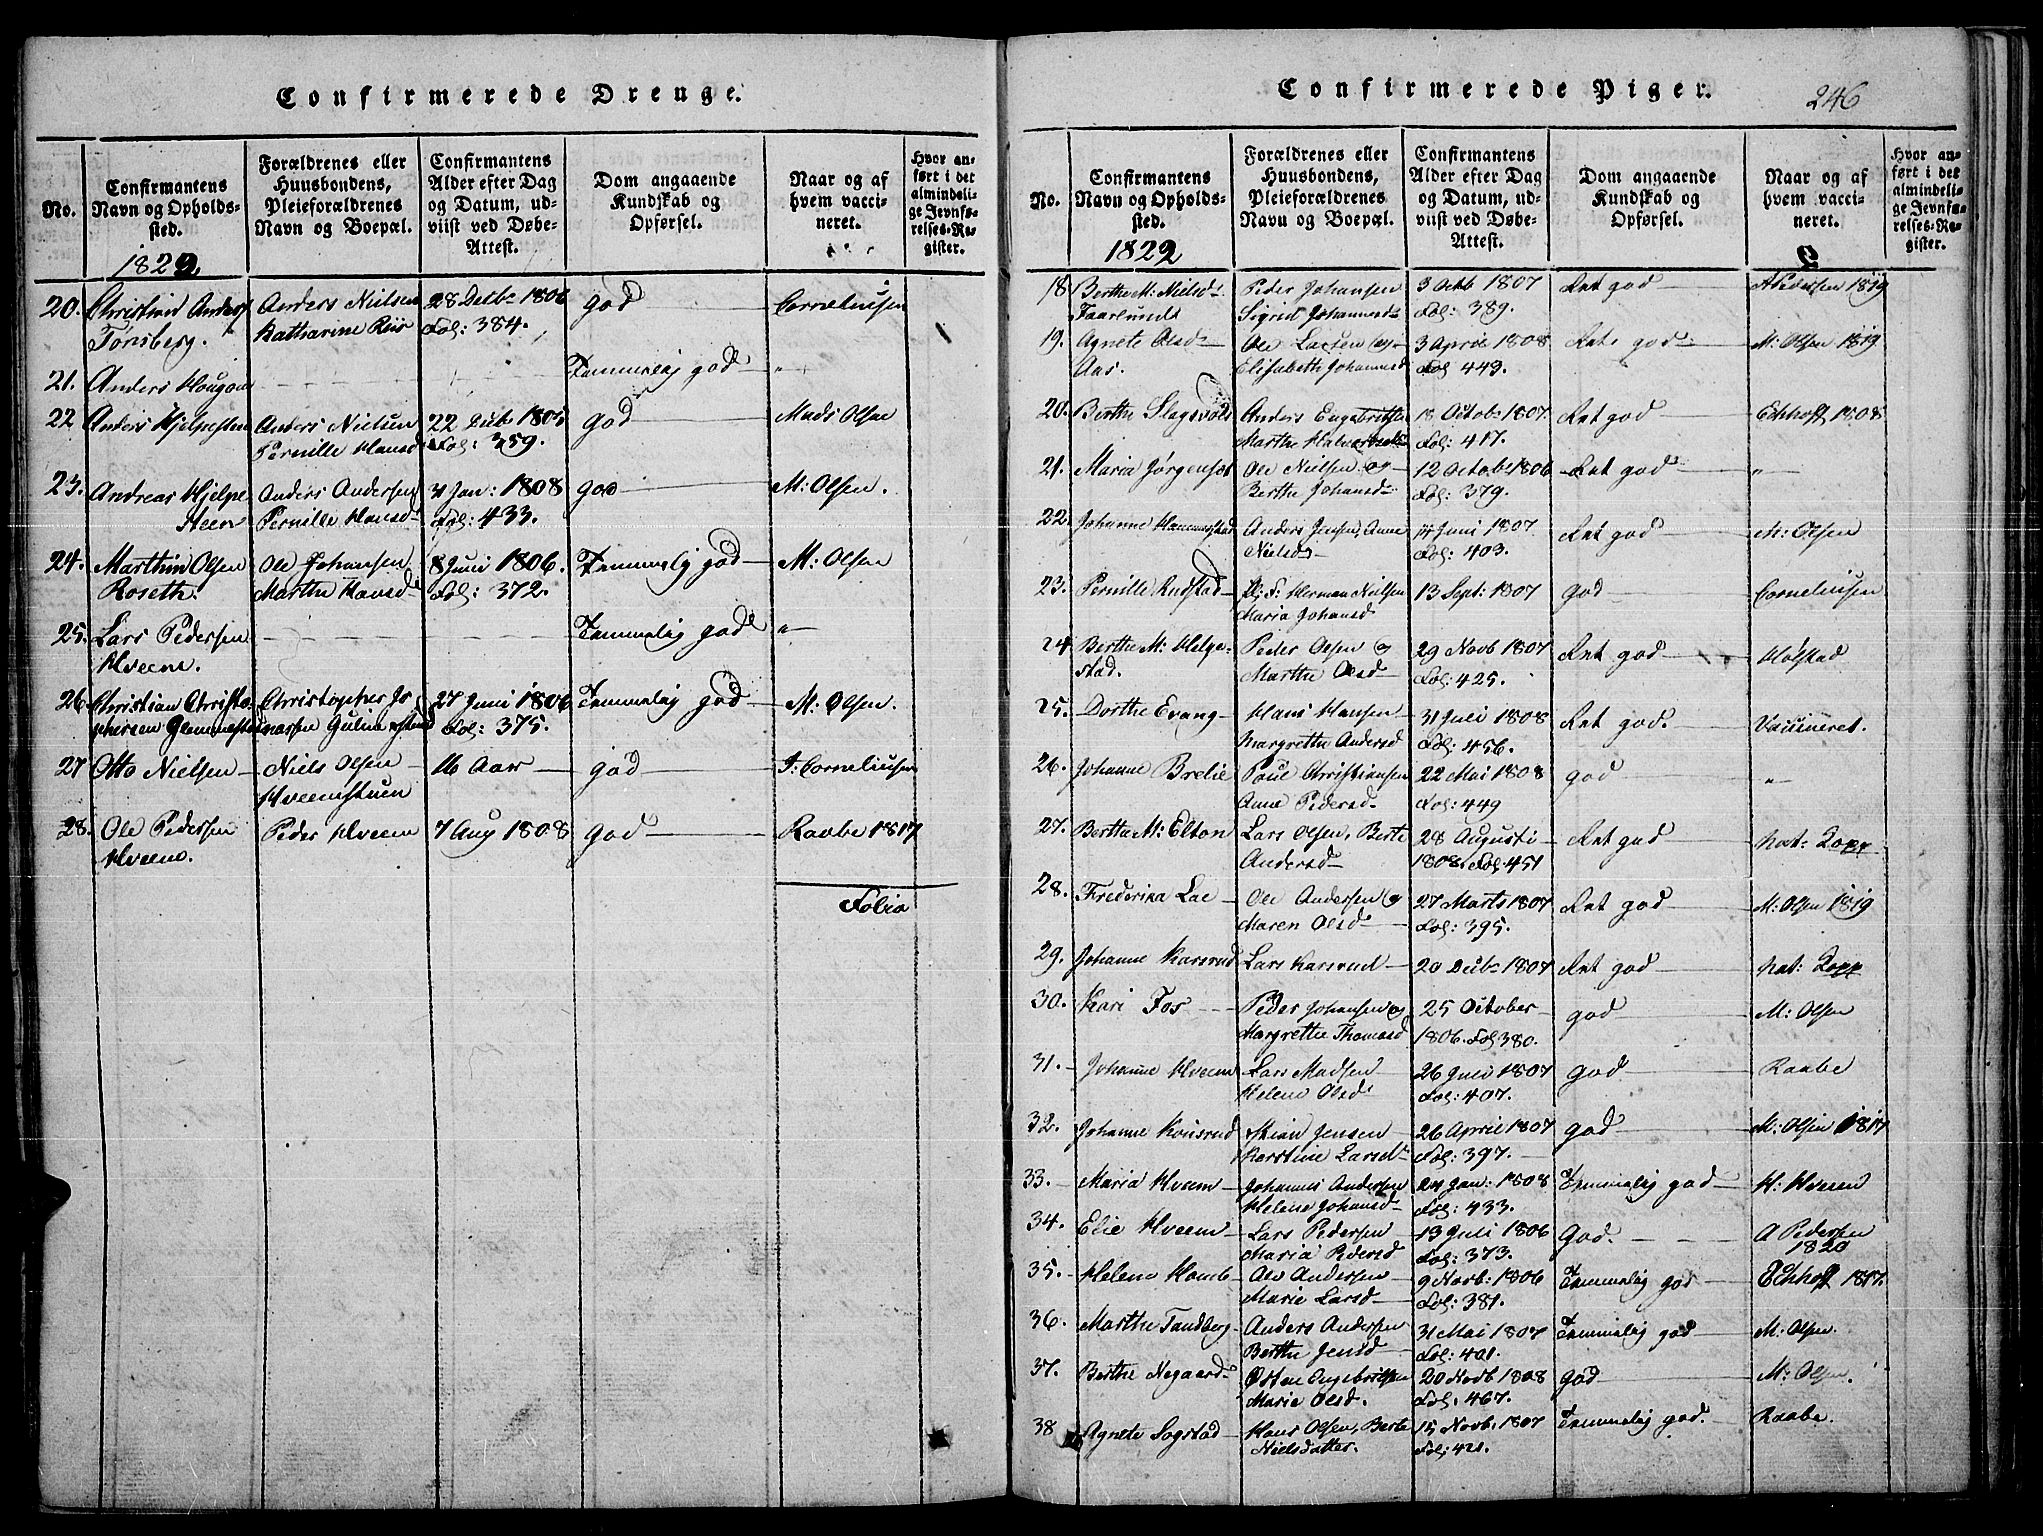 Confirmerede Drenge.
No.
Confirmantens
Navn og Opholds-
sted.
Forældrenes eller
Huusbondens,
Pleieforældrenes
Navn og Boepæl.
Confirmantens
Alder efter Dag
og Datum, ud-
viist ved Døbe-
Attest.
Dom angaaende
Kundskab og
Opførsel.
Naar og af
hvem vacci-
neret.
Hvor an-
ført i det
almindeli-
ge Jevnfø-
relses-Re-
gister.
20. Christian Anders Anders Nielsen 28 Decbr 1806 god Corneliusen
Tønsberg. Katharine Riis Fol: 384.
21. Anders Hougen Temmelig god "
22 Anders Hjelpesten Anders Nielsen 22 Decb 1805 god Mads Olsen
Pernille Hansd Fol: 359.
23. Andreas Hjelpe Anders Andersen 31 Jan: 1808 god M: Olsen.
steen Pernille Hansd Fol: 433.
24. Marthin Olsen Ole Johansen 8 Juni 1806. Temmelig god M: Olsen
Roseth. Marthe Hansd Fol: 372.
25. Lars Pedersen Temmelig god "
Hveem.
26 Christian Christo Christopher Jo 27 Juni 1806 Temmelig god M: Olsen.
phersen Glemmestad nassen Fol: 375.
27 Otto Nielsen Niels Olsen 16 Aar god J: Corneliusen
Hveemstuen
28. Ole Pedersen Peder Hveem 7 Aug 1808 god Raabe 1817
Hveem.
Folio
Confirmerede Piger.
246
No.
Confirmantens
Navn og Opholds-
sted.
1822
Forældrenes eller
Huusbondens,
Pleieforældrenes
Navn og Boepæl.
Confirmantens
Alder efter Dag
og Datum, ud-
viist ved Døbe-
Attest.
Dom angaaende
Kundskab og
Opførsel.
Naar og af
hvem vacci-
neret.
Hvor an-
ført i det
almindeli-
ge Jevnfø-
relses-Re-
gister.
18 Berthe M: Nielsd Peder Johansen 3 Octb 1807 Ret god A Pedersen 1819
Faarlund Sigrid Johannesd Fol: 389.
19. Agnete Olsd Ole Larsen og 3 April 1808 Ret god M: Olsen 1819
Aas. Elisabeth Johannesd Fol 443.
20. Berthe Slagsvold Anders Engebretsen 18 Octob 1807. Ret god Echhoff 1808
Marthe Halvorsd Fol: 417.
21. Maria Jørgenset Ole Nielsen og 12 Octob 1806 Ret god "
Berthe Johansd Fol: 379.
22. Johanne Hammerstad Anders Jensen, Anne 14 Juni 1807. Ret god M: Olsen
Nielsd Fol: 403.
23. Pernille Rudstad Pl: F: Herman Nielsen 13 Sept: 1807 god Corneliusen
Maria Johansd
24 Berthe M: Helge- Peder Olsen og 29 Novb 1807 Ret god Holstad
stad. Marthe Olsd Fol: 425.
25. Dorthe Evang Hans Hansen 31 Juli 1808 Ret god. Vaccineret.
Margrethe Andersd Fol: 456.
26. Johanne Brelie Poul Christiansen 22 Mai 1808 god "
Anne Pedersd Fol: 449
27. Bertha M: Elton Lars Olsen, Berte 28 Augusti Ret god Nat: Kopp
Andersd 1808. Fol: 451
28. Frederika Lae Ole Andersen og 27 Marts 1807 Ret god M: Olsen 1819
Maren Olsd Fol: 395.
29. Johanne Karsrud Lars Karsrud 20 Decb 1807 Ret god Nat: Kopp
30. Kari Fos Peder Johansen og 25 October god M: Olsen
Margrethe Thomasd 1806. Fol 380.
31. Johanne Hveem Lars Madsen 26 Juli 1807 god Raabe
Helene Olsd Fol: 407.
32. Johanne Konsrud Stian Jensen 26 April 1807 god M: Olsen 1817
Kerstine Larsd Fol: 397.
33. Maria Hveem Johannes Andersen 24 Jan: 1808 Temmelig god H: Hveem
Helene Johansd Fol: 433.
34. Elie Hveem Lars Pedersen 13 Juli 1806 God. A Pedersen
Maria Pedersd Fol: 373. 1820
35. Helene Homb Ole Andersen 9 Novb: 1806 Temmelig god Echhoff 1817.
Marie Larsd Fol: 381.
36. Marthe Tandberg Anders Andersen 31 Mai 1807 Temmelig god M: Olsen.
Berthe Jensd Fol: 401.
37. Berthe Negaard Østen Engebretsen 20 Novb 1808 god M: Olsen.
Marie Olsd. Fol. 467.
38 Agnete Sogstad Hans Olsen, Berte 15 Novb. 1807 Temmelig god. Raabe.
Nielsdatter. Fol: 421.